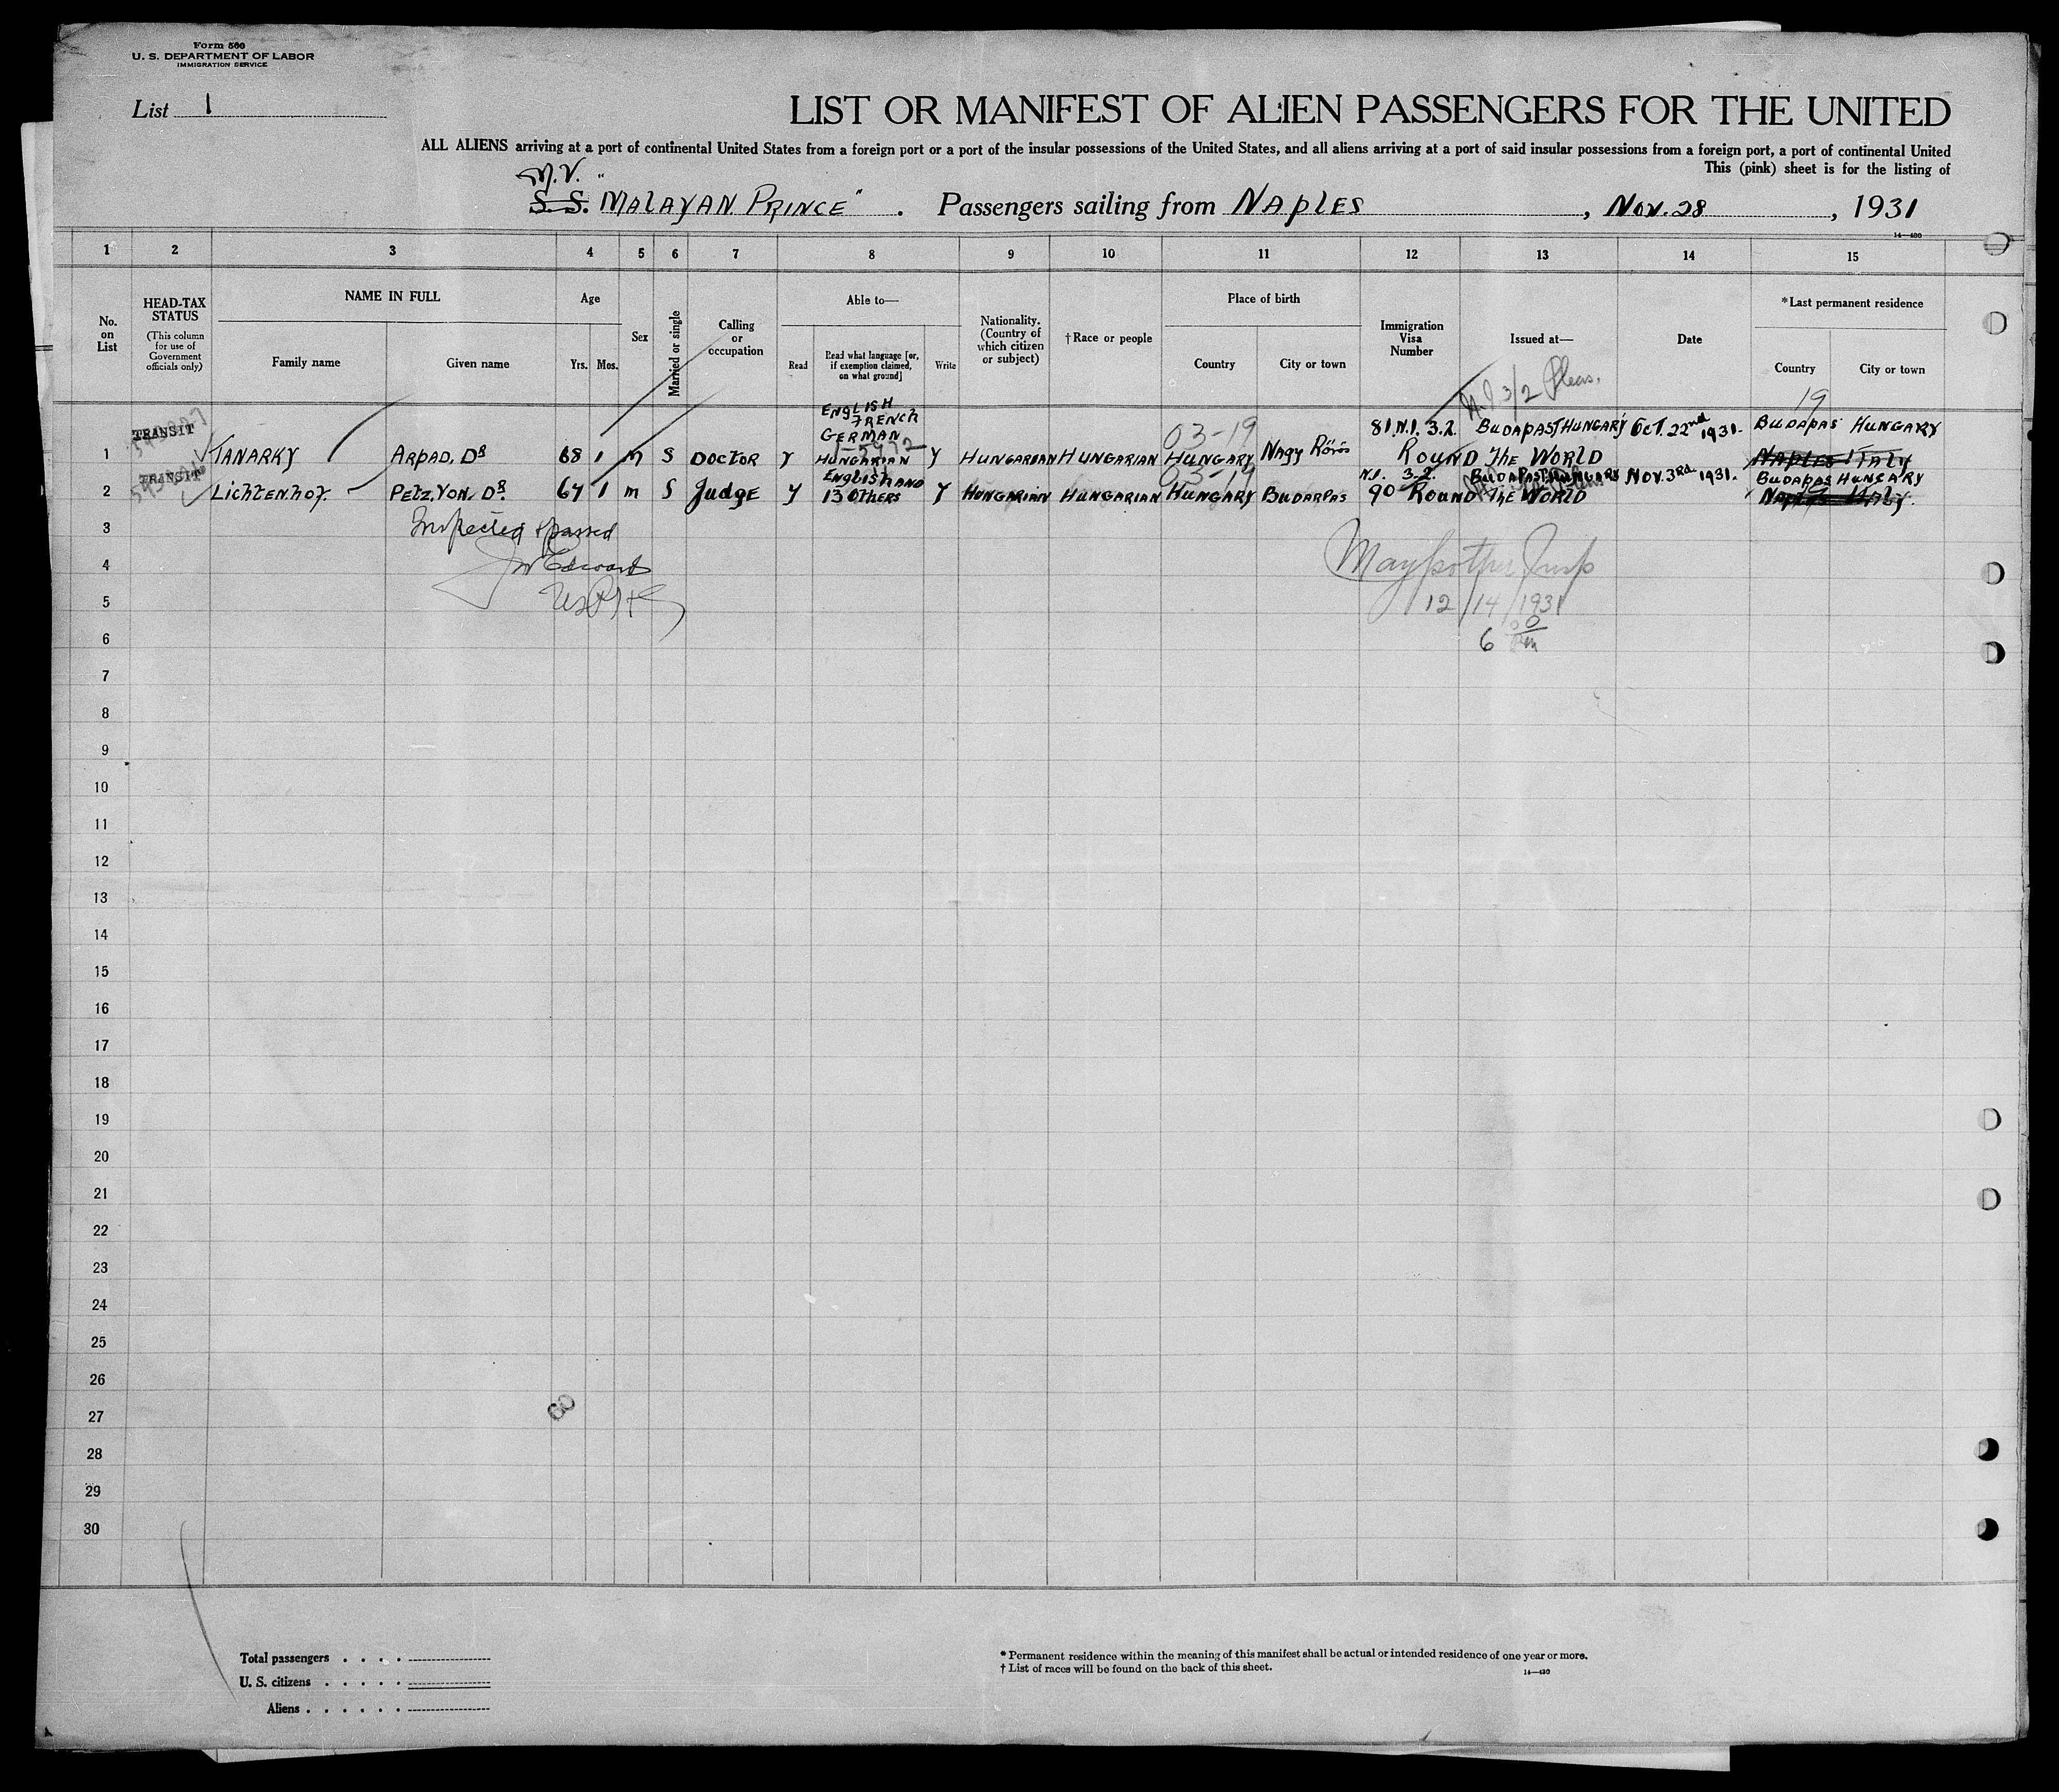 Form 500
U. S. DEPARTMENT OF LABOR
IMMIGRATION SERVICE
List 1
LIST OR MANIFEST OF ALIEN PASSENGERS FOR THE UNITED
ALL ALIENS arriving at a port of continental United States from a foreign port or a port of the insular possessions of the United States, and all aliens arriving at a port of said insular possessions from a foreign port, a port of continental United
This (pink) sheet is for the listing of
M.V. "
S. S. MALAYAN PRINCE" . Passengers sailing from NAPLES , NOV. 28 , 1931
14—430
1 2 3 4 5 6 7 8 9 10 11 12 13 14 15
No. on List
HEAD-TAX STATUS
(This column for use of Government officials only)
NAME IN FULL
Family name
Given name
Age
Yrs. Mos.
Sex
Married or single
Calling or occupation
Able to—
Read
Read what language [or, if exemption claimed, on what ground]
Write
Nationality. (Country of which citizen or subject)
†Race or people
Place of birth
Country
City or town
Immigration Visa Number
Issued at—
Date
*Last permanent residence
Country
City or town
3/2 Pleas.
19
TRANSIT
ENGLISH
FRENCH
GERMAN
03-19
81 N.I. 3.2. BUDAPAST HUNGARY OCT. 22nd 1931. BUDAPAS HUNGARY
1 TANARKY ARPAD, DR 68 1 M S DOCTOR Y HUNGARIAN Y HUNGARIAN HUNGARIAN HUNGARY Nagy Körös ROUND THE WORLD NAPLES ITALY
TRANSIT
ENGLISH AND
03-19
N.I. 3.2. BUDAPAST HUNGARY NOV. 3rd 1931. BUDAPAS HUNGARY
2 LICHTENHOF. PETZ, VON, DR. 67 1 M S JUDGE Y 13 OTHERS Y HUNGARIAN HUNGARIAN HUNGARY BUDARPAS 90 ROUND THE WORLD Naples Italy.
3 Inspected & passed
4
5 12/14/1931
6 6 00
7
8
9
10
11
12
13
14
15
16
17
18
19
20
21
22
23
24
25
26
27
28
29
30
60
Total passengers . . . .
U. S. citizens . . . . .
Aliens . . . . . .
* Permanent residence within the meaning of this manifest shall be actual or intended residence of one year or more.
† List of races will be found on the back of this sheet.
14—430